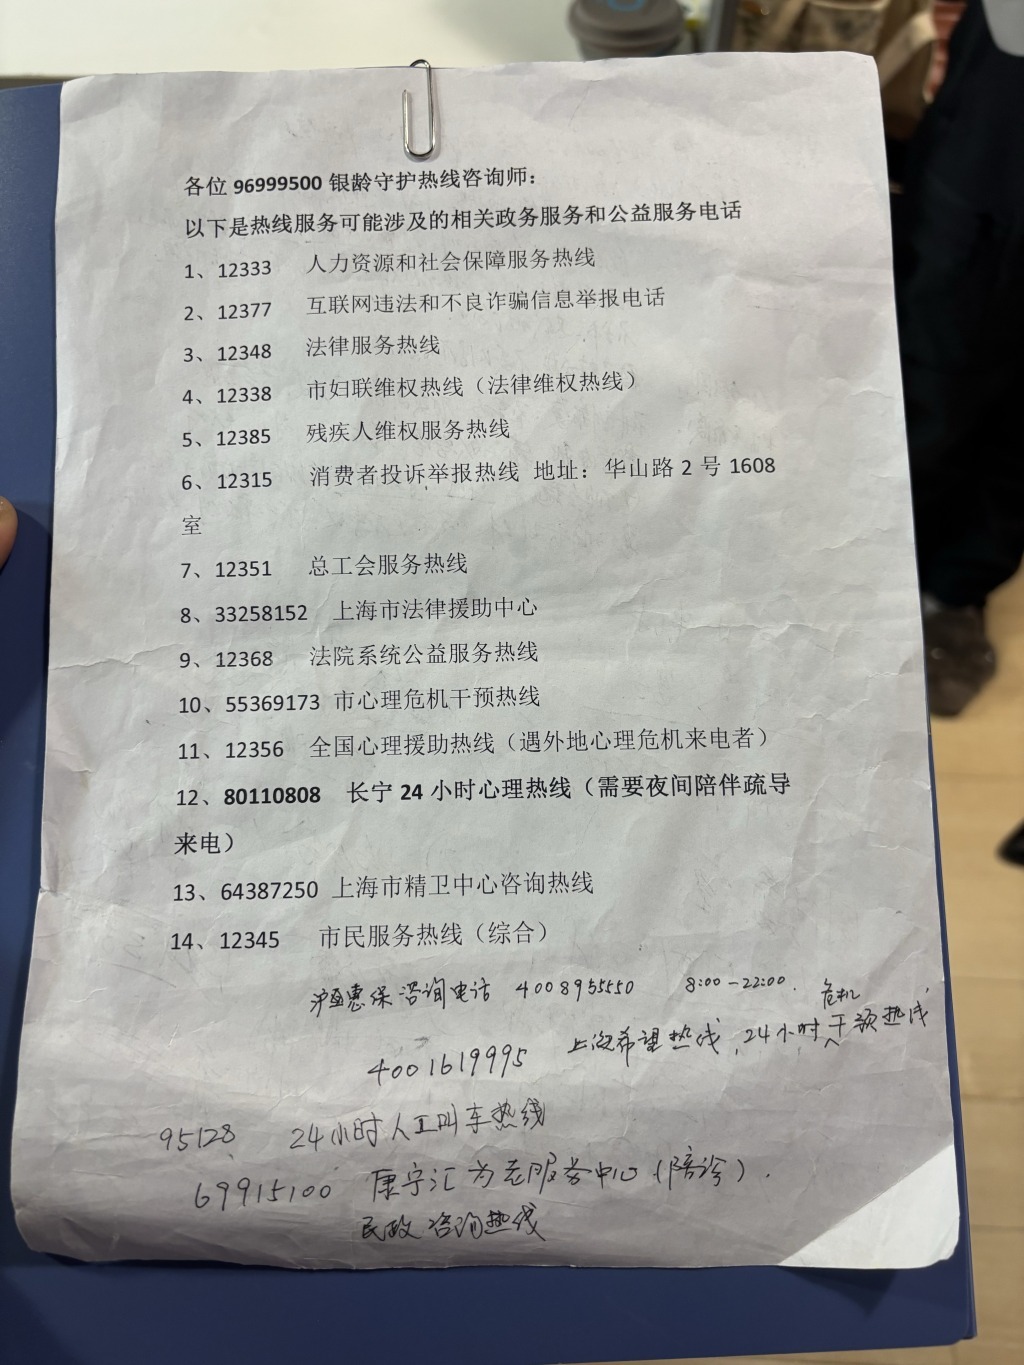 各位 96999500 银龄守护热线咨询师：
以下是热线服务可能涉及的相关政务服务和公益服务电话
1、12333 人力资源和社会保障服务热线
2、12377 互联网违法和不良诈骗信息举报电话
3、12348 法律服务热线
4、12338 市妇联维权热线（法律维权热线）
5、12385 残疾人维权服务热线
6、12315 消费者投诉举报热线 地址：华山路 2 号 1608
室
7、12351 总工会服务热线
8、33258152 上海市法律援助中心
9、12368 法院系统公益服务热线
10、55369173 市心理危机干预热线
11、12356 全国心理援助热线（遇外地心理危机来电者）
12、80110808 长宁 24 小时心理热线（需要夜间陪伴疏导
来电）
13、64387250 上海市精卫中心咨询热线
14、12345 市民服务热线（综合）
沪惠保咨询电话 4008955550 8:00-22:00.
4001619995 上海希望热线，24小时危机干预热线
95128 24小时人工叫车热线
69915100 康宁汇为老服务中心(陪诊).
民政咨询热线